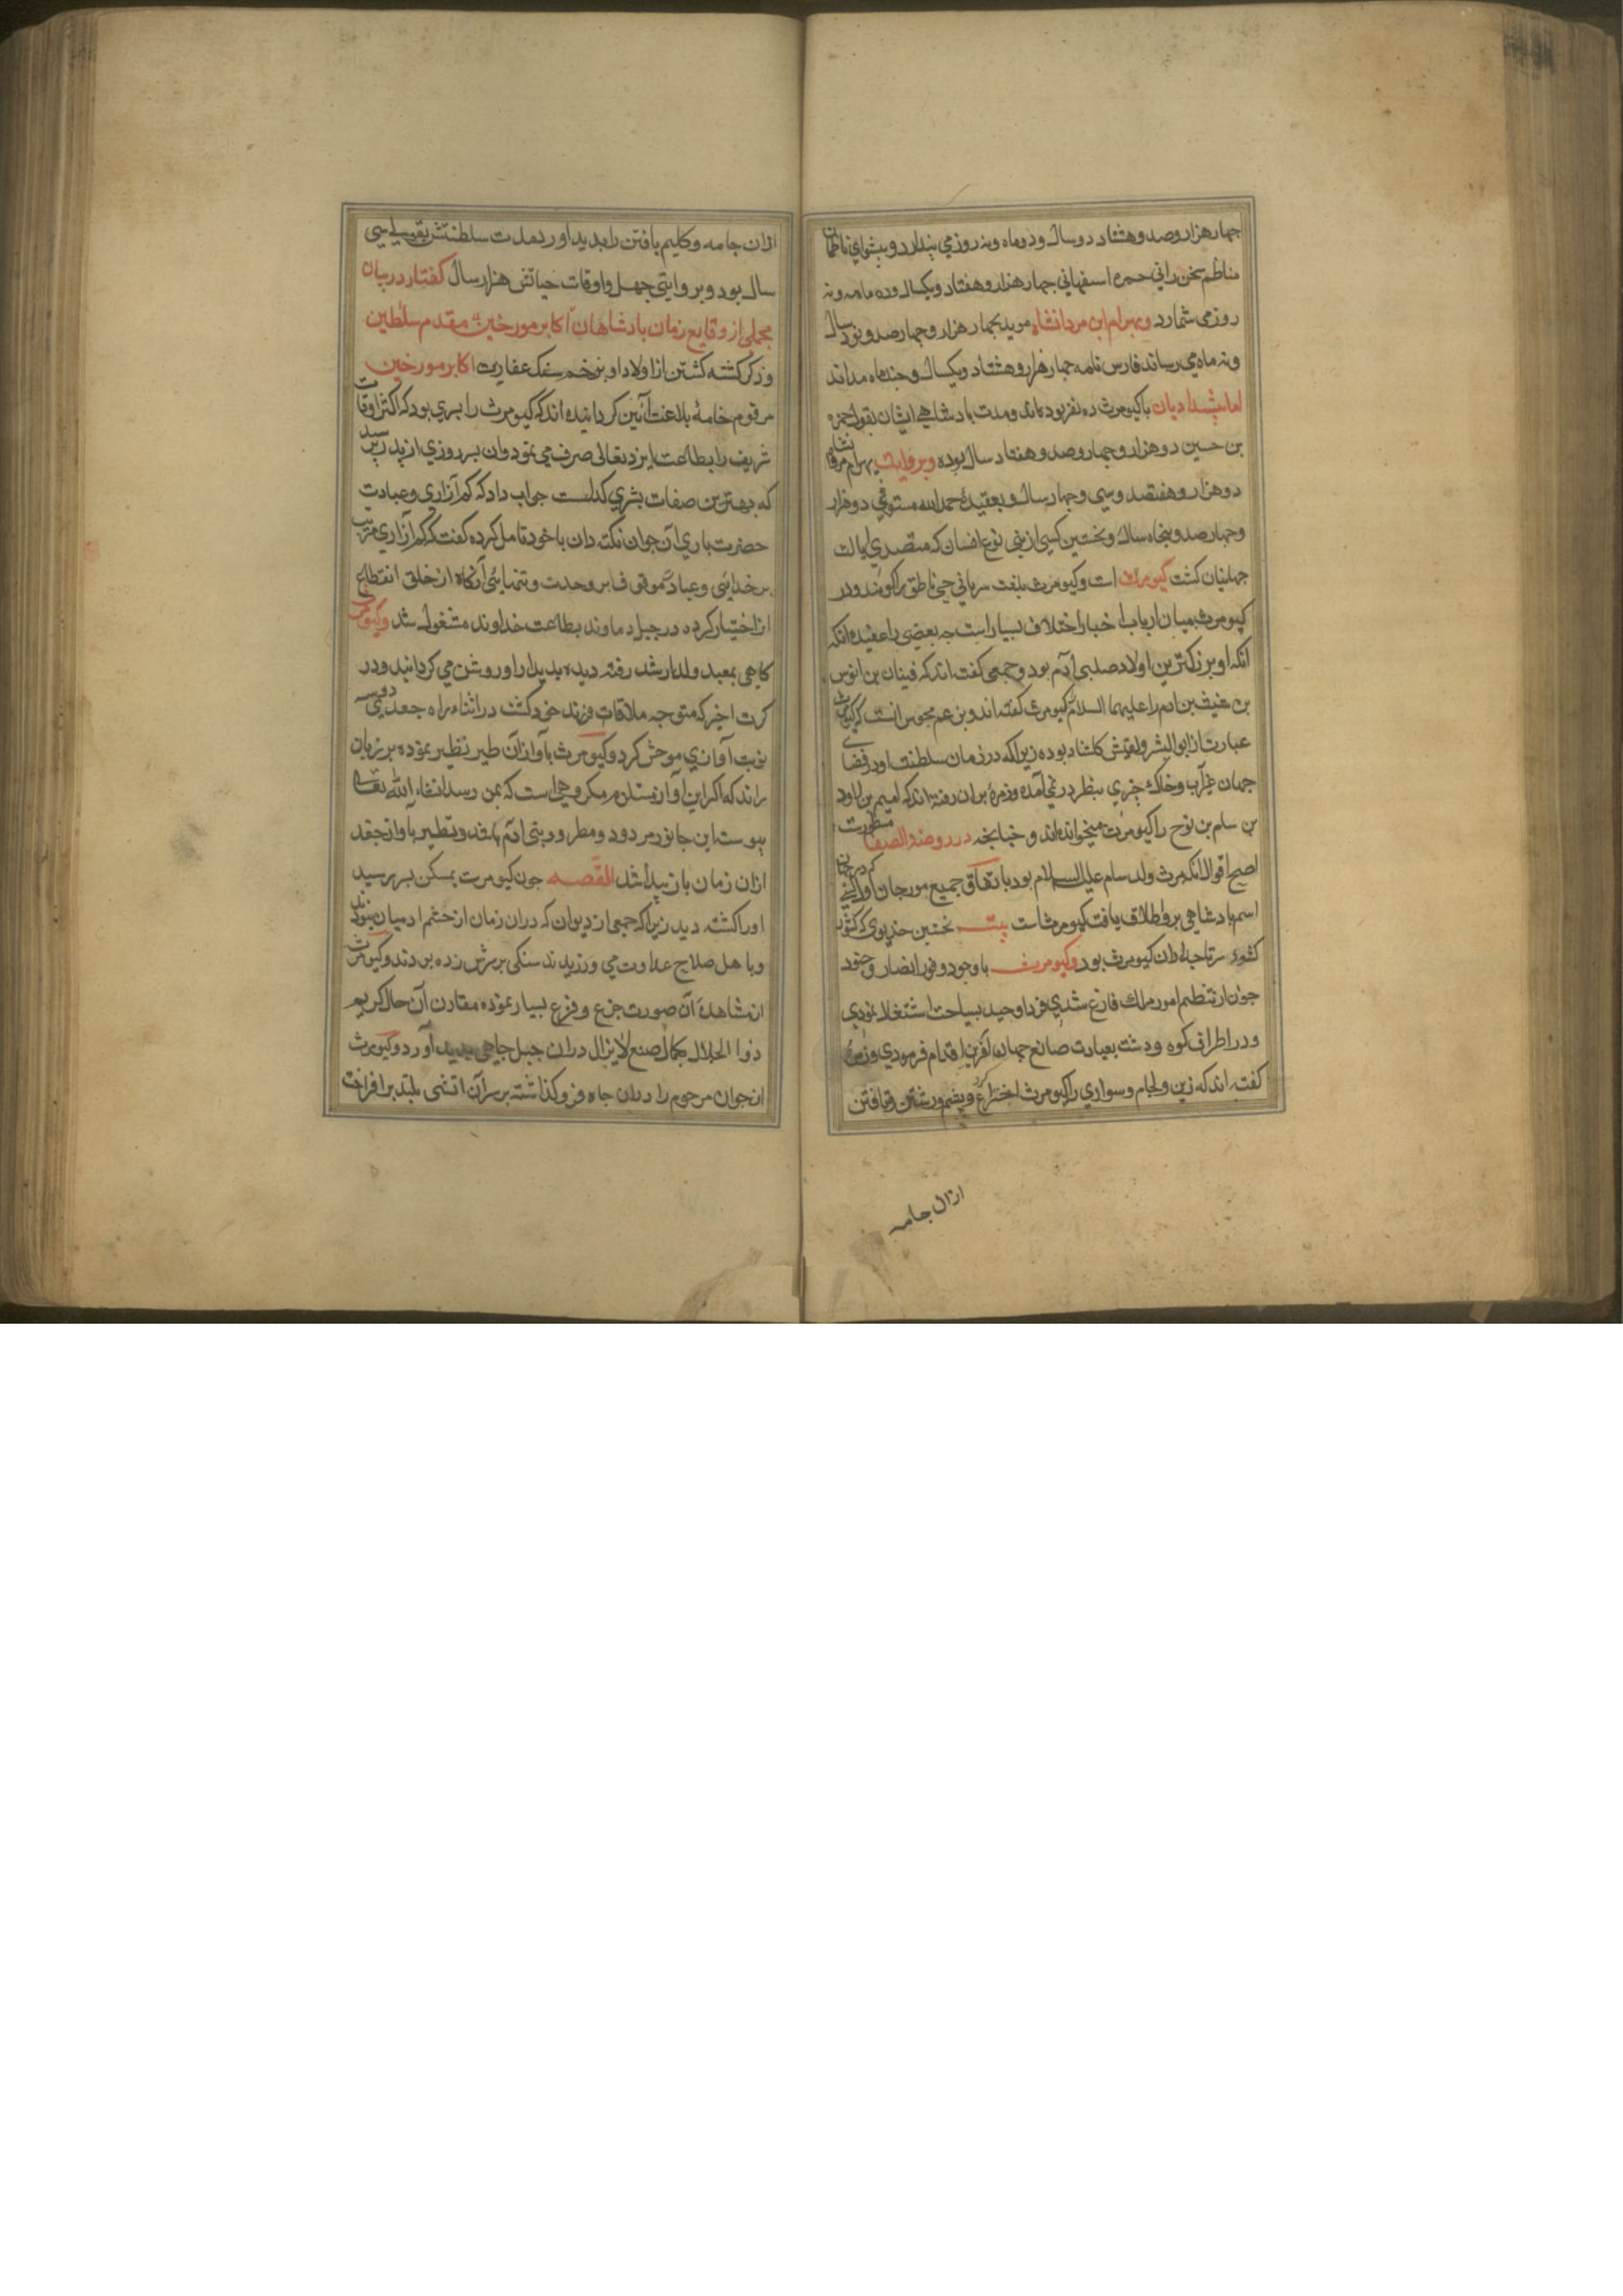 چهار هزار و صد و هشتاد دو سال و دو ماه و نه روز می پندارد و پیشوای ناظمان
مناظم سخن رانی حمزه اسفهانی چهار هزار و هفتاد و یکسال و ده ماه و نه
روز می شمارد و بهرام ابن مردانشاه موبد بچهار هزار و چهار صد و نود سال
و نه ماه می رساند فارس نامه چهار هزار و هشتاد و یکسال و چند ماه مداند
اما پیشدادیان با کیومرث ده نفر بوده اند و مدت بادشاهی ایشان بقول حمزه
بن حسین دو هزار و چهار وصد و هفتاد سال بوده و بروایت بهرام مردانشاه
دو هزار و هفتصد و سی و چهار سال و بعقیدهٔ حمد الله مستوفی دو هزار
و چهار صد و پنجاه سال و نخستین کسی از بنی نوع انسان که متصدی ایالت
جهانیان کشت کیومرث است و کیومرث بلغت سریانی حی ناطق را کویند و در
کیومرث میان ارباب اخبار اختلاف بسیار است چه بعضی را عقیده انکه
انکه او بزرکترین اولاد صلبی آدم بود و جمعی کفته اند که قینان بن انوس
بن شیث بن ادم را علیهما السلام کیومرث کفته اند و بزعم مجوس انست که کیومرث
عبارت از ابو البشر و لقبش کلشاه بوده زیرا که در زمان سلطنت او در فضای
جهان غیر آب و خاک چیزی بنظر در نمی آمده و زمرهٔ بران رفته اند که امیم بن لاود
بن سلم بن نوح را کیومرث میخوانده اند و چنانچه در روضة الصفا مسطورست
اصح اقوال انکه کیومرث ولد سام علیه السلام بود باتفاق جمیع مورخان اول کسی که در جهان
اسم بادشاهی برو اطلاق یافت کیومرث است بیت نخستین خدیوی که کشور
کشود سرتاجداران کیومرث بود و کیومرث با وجود وفور انصار و جنود
چون از تنظیم امور ملک فارغ شدی فردا وحید بسیاحت اشتغال نمودی
و در اطراف کوه و دشت بعبادت صانع جهان آفرین اقدام فرمودی و زمرهٔ
کفته اند که زین و لجام و سواری را کیومرث اختراع کرد و پشم و رشتن و بافتن
ازان جامه
ازان جامه و کلیم بافتن را بدید اورد مدت سلطنتش بقولی سی
سال بود و بروایتی چهل و اوقات حیاتش هزار سال کفتار در بیان
مجملی از وقایع زمان بادشاهان اکابر مورخین مقدم سلطین
و ذکر کشته کشتن از اولاد او بزخم سنک عفاریت اکابر مورخین
مرقوم خامهٔ بلاغت آئین کردانیده اند که کیومرث را پسری بود که اکثر اوقات
شریف را بطاعت ایزد تعالی صرف می نمود و ان پسر روزی از پدر پرسید
که بهترین صفات بشری کدامست جواب داد که کم آزاری و عبادت
حضرت باری آن جوان نکته دان با خود تامل کرده کفت که کم آزاری مترتب
بر خدایی و عبادت موقوف بر وحدت و تنهایی آنکاه از خلق انقطاع
از اختیار کرده در جبل دماوند بطاعت خداوند مشغول شد و کیومرث
کاهی بمعبد ولد ارشد رفته دیده بدیدار او روشن می کردانید و در
کرت اخیر که متوجه ملاقات فرزند خود کشت در اثناء راه جغدی دو سه
نوبت آوازی موحش کرد و کیومرث باواز آن طیر تطیر نموده بر زبان
راند که اکر این آواز مستلزم مکروهی است که بمن رسد انشاء الله تعالی
پیوسته این جانور مردود و مطرود بنی ادم باشد و تطیر باواز جغد
ازان زمان باز پیدا شد القصه چون کیومرث بمسکن پسر رسید
او را کشته دید زیرا که جمعی از دیوان که دران زمان از چشم ادمیان نبودند
و با اهل صلاح عداوت می ورزیدند سنکی بر سرش زده بودند و کیومرث
از مشاهدهٔ آن صورت جزع و فزع بسیار نموده مقارن آن حال کریم
ذوا الجلال بکمال صنع لایزال دران جبل چاهی پدید آورد و کیومرث
ان جوان مرحوم را دران چاه فرو کذاشته بر سر آن اتشی بلند بر افراخت